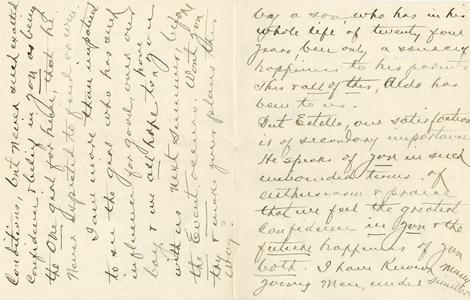 by a son who has in his
whole life of twenty four
years been only a source of
happiness to his parents
This & all of this, Aldo has
been to us.
But Estella, our satisfaction
is of secondary importance
He speaks of you in such
unbounded terms of
enthusiasm & praise
that we feel the greatest
Confidence in you & the
future happiness of you
both. I have known many
young men, under similar
Conditions, but never such exalted
Confidence & belief in you as being
the One girl for him that he
Never expected to find in
I am more than impatient
to see the girl who has such
influence for good, over our
boy, & we all hope to have you
with us next Summer, before
the Event occurs. Won't you
try & make your plans this
way?